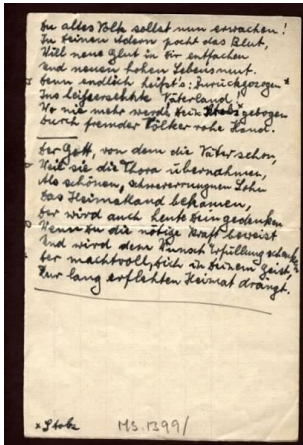 Du altes Volk sollst nun erwachen!
In Deinen Adern pocht das Blut,
Will neue Glut in Dir entfachen
Und neuen hohen Lebensmut.
Denn endlich heißt's: Zurückgezogen
Ins heißersehnte Vaterland,
Wo nie mehr werde Dein gebogen
Durch fremder Völker rohe Hand.
Der Gott, von dem die Väter schon,
Weil sie die Thora übernahmen,
Als schönen, schwererrungnen Lohn
Das Heimatland bekamen,
Der wird auch heute Dein gedenken
Wenn Du die nötige Kraft beweist
Und wird dem Wunsch Erfüllung schenken
Der machtvoll, Dich in Deinem Geist,
Zur lang erflehten Heimat drängt.
x Stolz
MS. 1399/